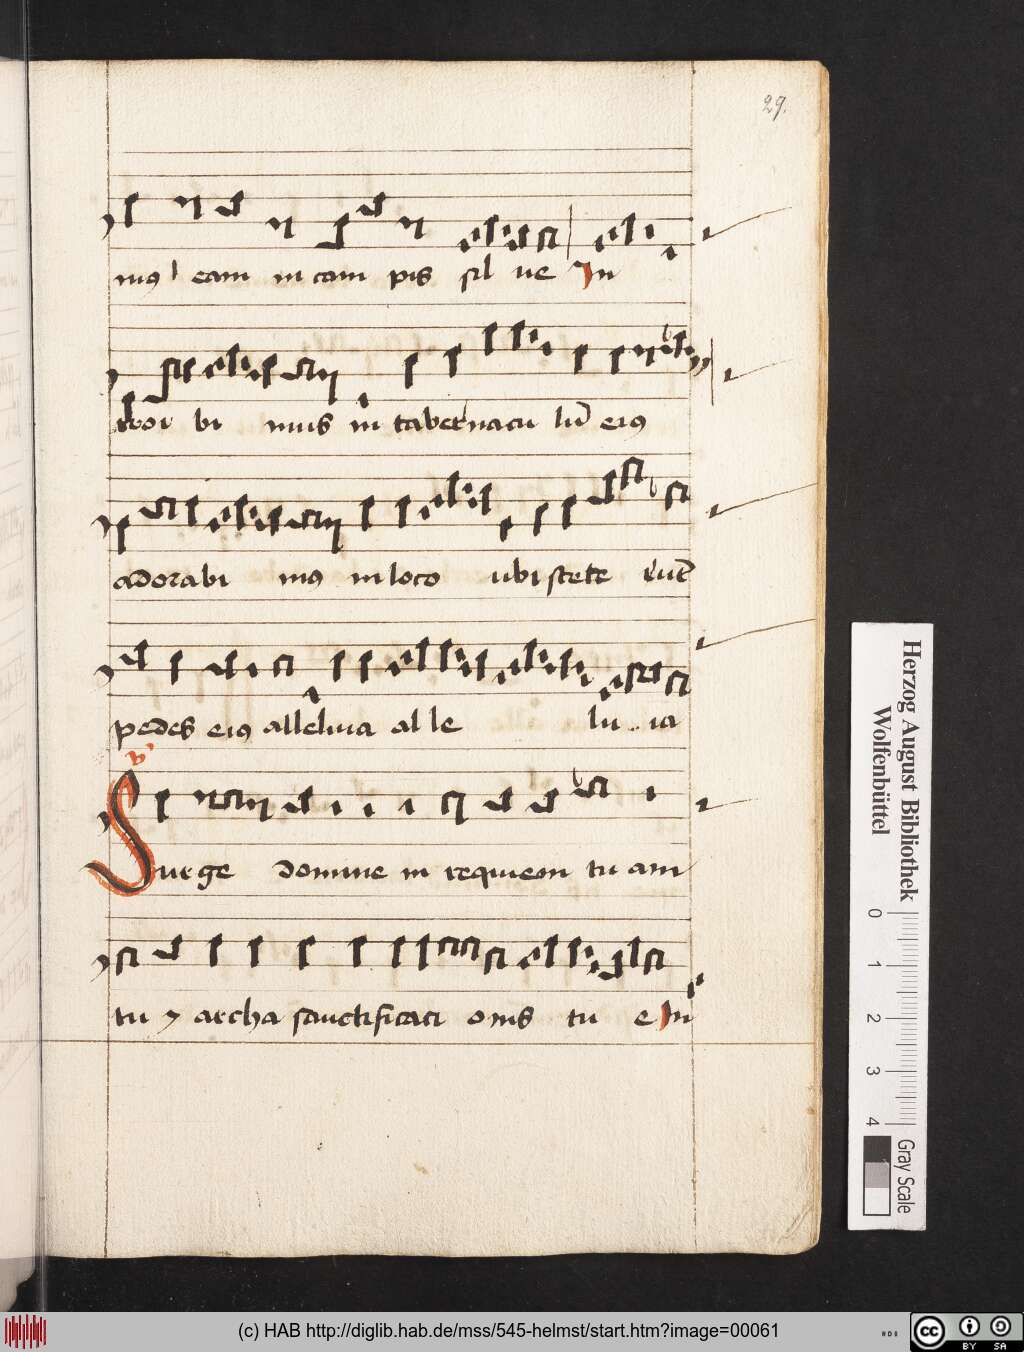 29.
mus eam in cam pis sil ue In
troi bi mus in tabernacu lũ eius
adorabi mus in loco ubi stete rũt
pedes eius alleluia al le lu ia
Surge domine in requiem tu am
tu archa sanctificaci onis tu e In
Herzog August Bibliothek
Wolfenbüttel
0 1 2 3 4
Gray Scale
(c) HAB http://diglib.hab.de/mss/545-helmst/start.htm?image=00061
cc BY SA